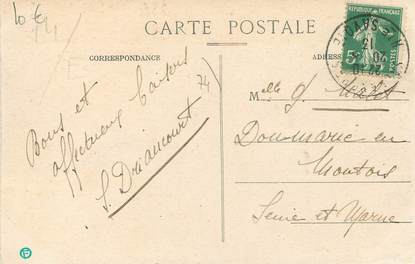 10€
CARTE POSTALE
CORRESPONDANCE
ADRES
RÉPUBLIQUE FRANÇAISE
5
Bons et
affectueux baisers
74
Melle J.
Donnemarie en
Montois
Seine et Marne